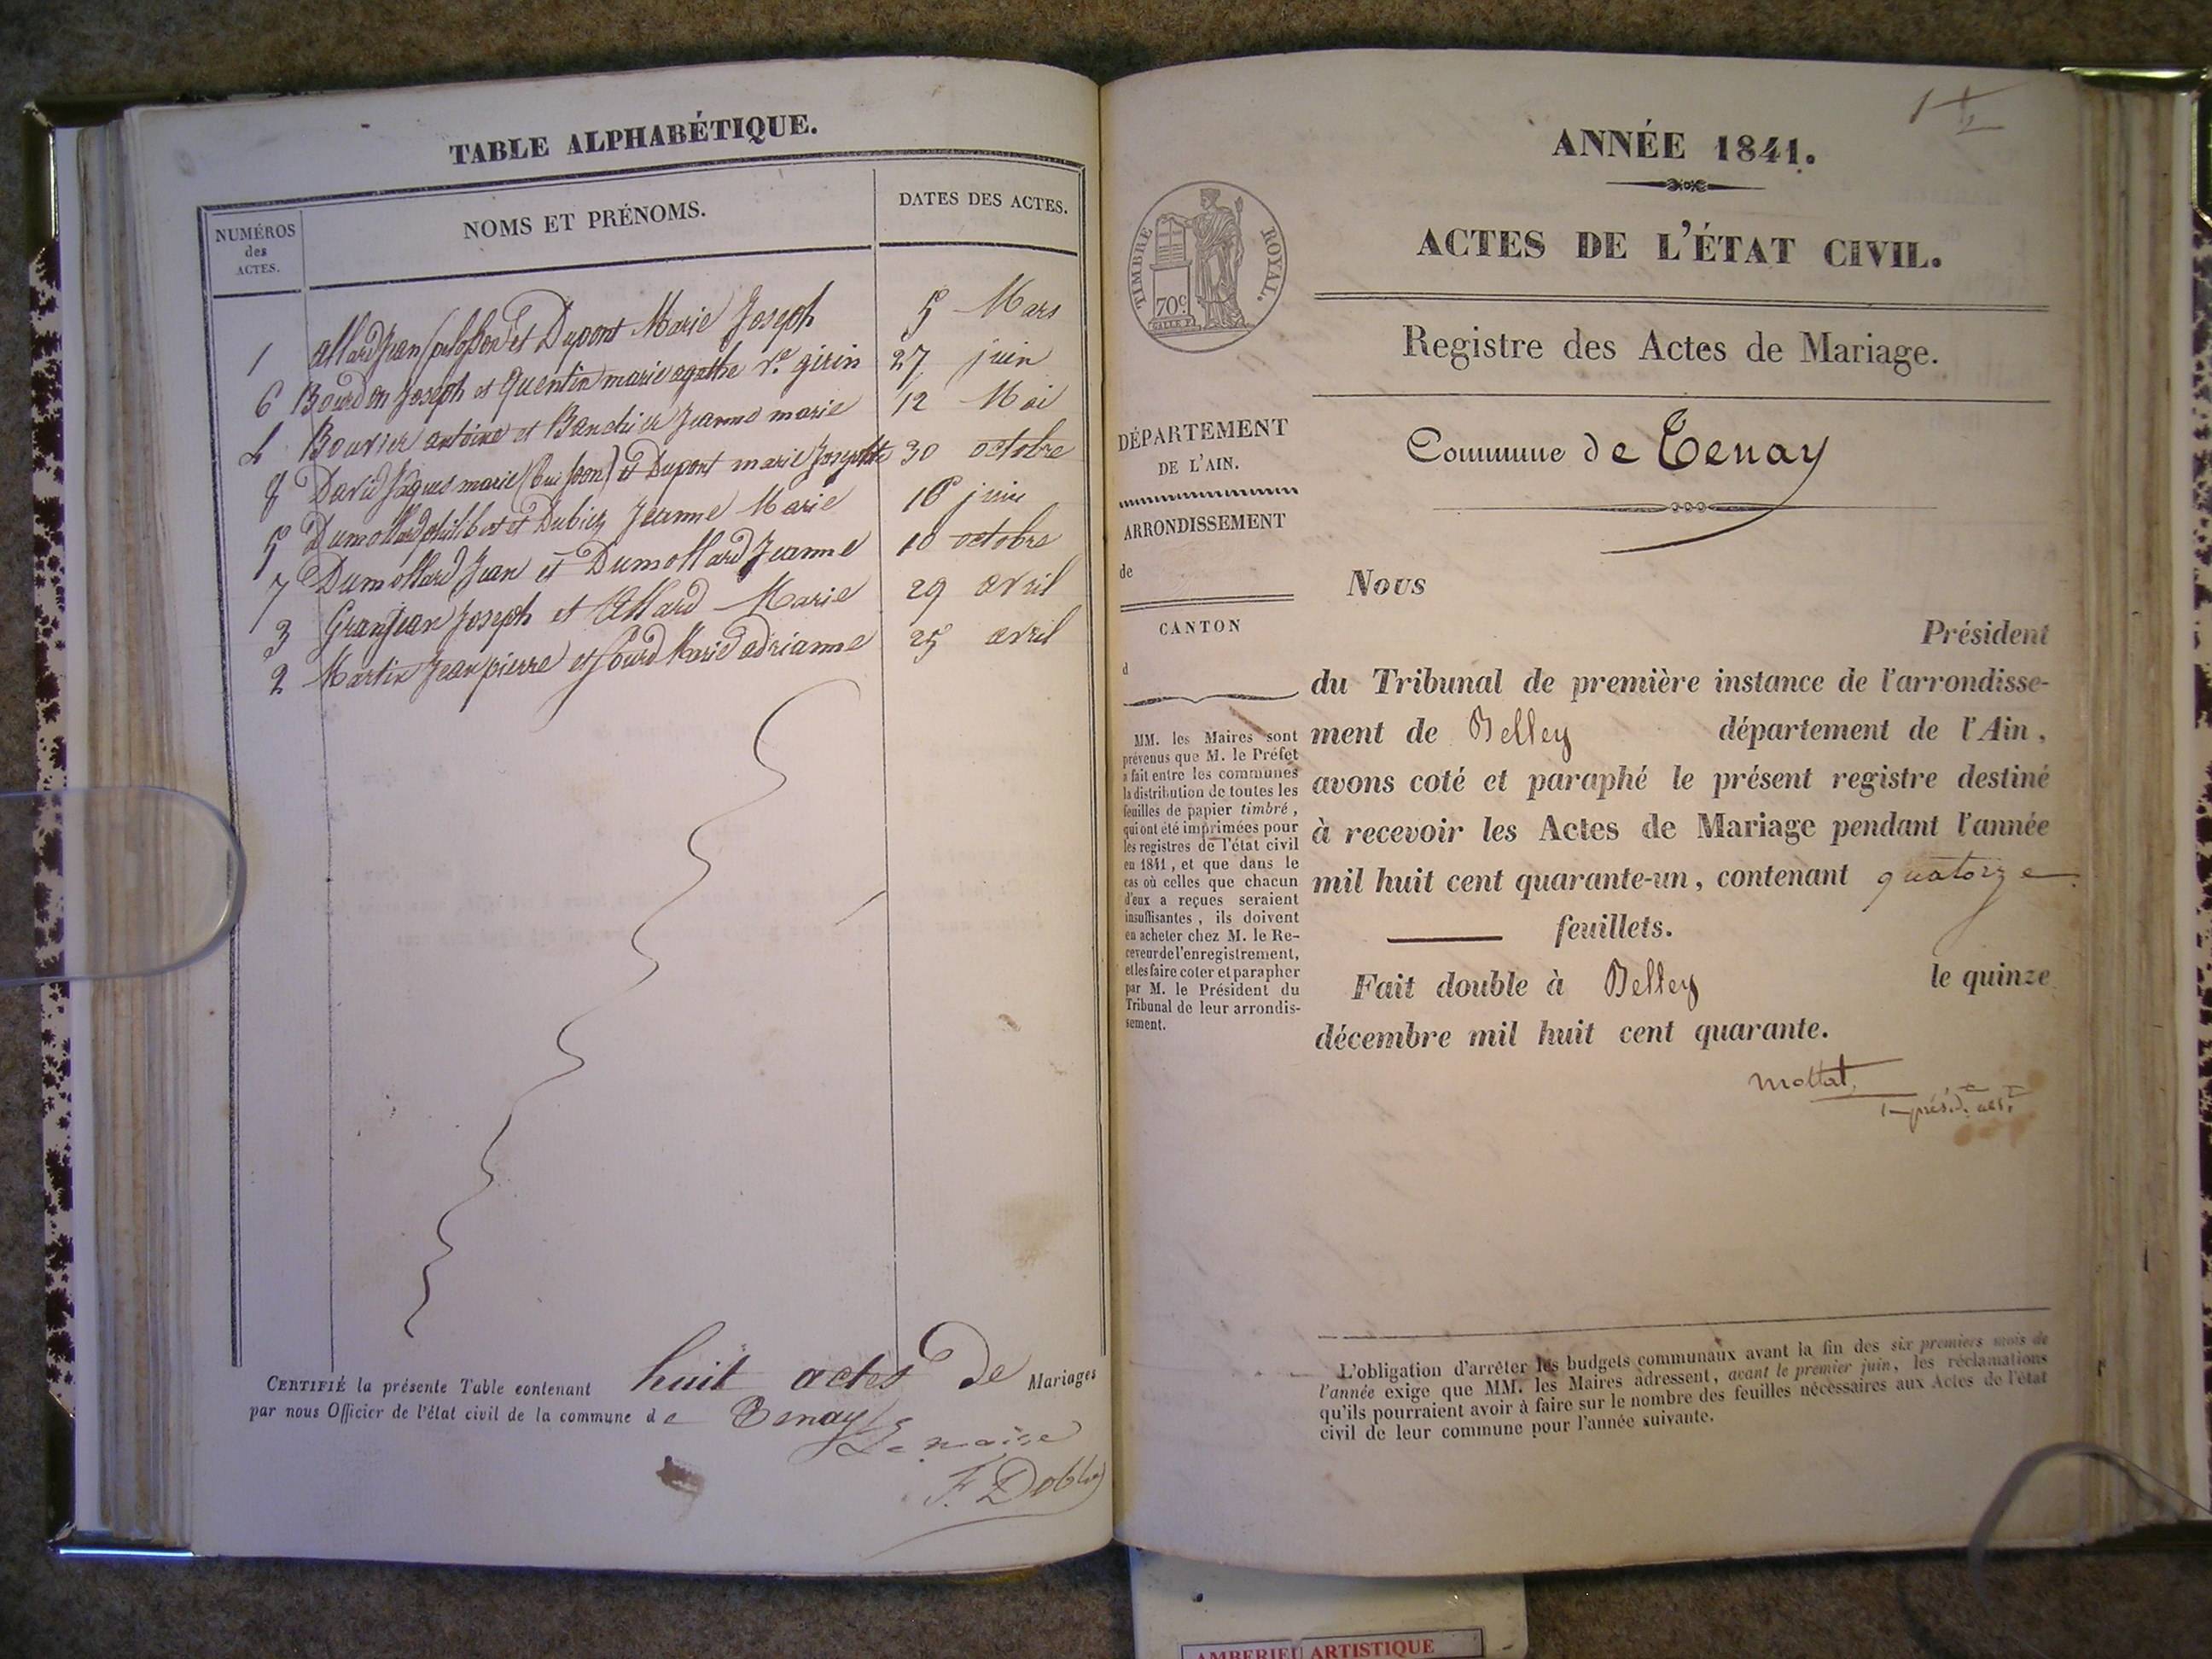 TABLE ALPHABÉTIQUE.
NUMÉROS
des
ACTES.
NOMS ET PRÉNOMS.
DATES DES ACTES.
1 allard Jean et Dupont Marie Joseph 5 Mars
6 Bourdon Joseph et Quentin marie agathe Ve girin 27 juin
4 Bouvier antoine et Jeanne marie 12 Mai
8 David Jâques marie (Buisson) et Dupont marie Josephte 30 octobre
5 Dumollard philibert et Dubiez Jeanne Marie 16 juin
7 Dumollard Jean et Dumollard Jeanne 10 octobre
3 Granjean Joseph et Allard Marie 29 avril
2 Martin Jean pierre et Sourd Marie adrianne 25 avril
CERTIFIÉ la présente Table contenant huit actes de Mariages
par nous Officier de l'état civil de la commune de Tenay
Le maire
F. Dobly
1
2
ANNÉE 1841.
TIMBRE ROYAL.
70c
ACTES DE L'ÉTAT CIVIL.
Registre des Actes de Mariage.
DÉPARTEMENT
DE L'AIN.
ARRONDISSEMENT
de
CANTON
d
MM. les Maires sont
prévenus que M. le Préfet
a fait entre les communes
la distribution de toutes les
feuilles de papier timbré,
qui ont été imprimées pour
les registres de l'état civil
en 1841, et que dans le
cas où celles que chacun
d'eux a reçues seraient
insuffisantes, ils doivent
en acheter chez M. le Re-
ceveur de l'enregistrement,
et les faire coter et parapher
par M. le Président du
Tribunal de leur arrondis-
sement.
Commune de Tenay
Nous
Président
du Tribunal de première instance de l'arrondisse-
ment de Belley département de l'Ain,
avons coté et paraphé le présent registre destiné
à recevoir les Actes de Mariage pendant l'année
mil huit cent quarante-un, contenant quatorze
feuillets.
Fait double à Belley le quinze
décembre mil huit cent quarante.
mottat
L'obligation d'arrêter les budgets communaux avant la fin des six premiers mois de
l'année exige que MM. les Maires adressent, avant le premier juin, les réclamations
qu'ils pourraient avoir à faire sur le nombre des feuilles nécessaires aux Actes de l'état
civil de leur commune pour l'année suivante.
AMBERIEU ARTISTIQUE